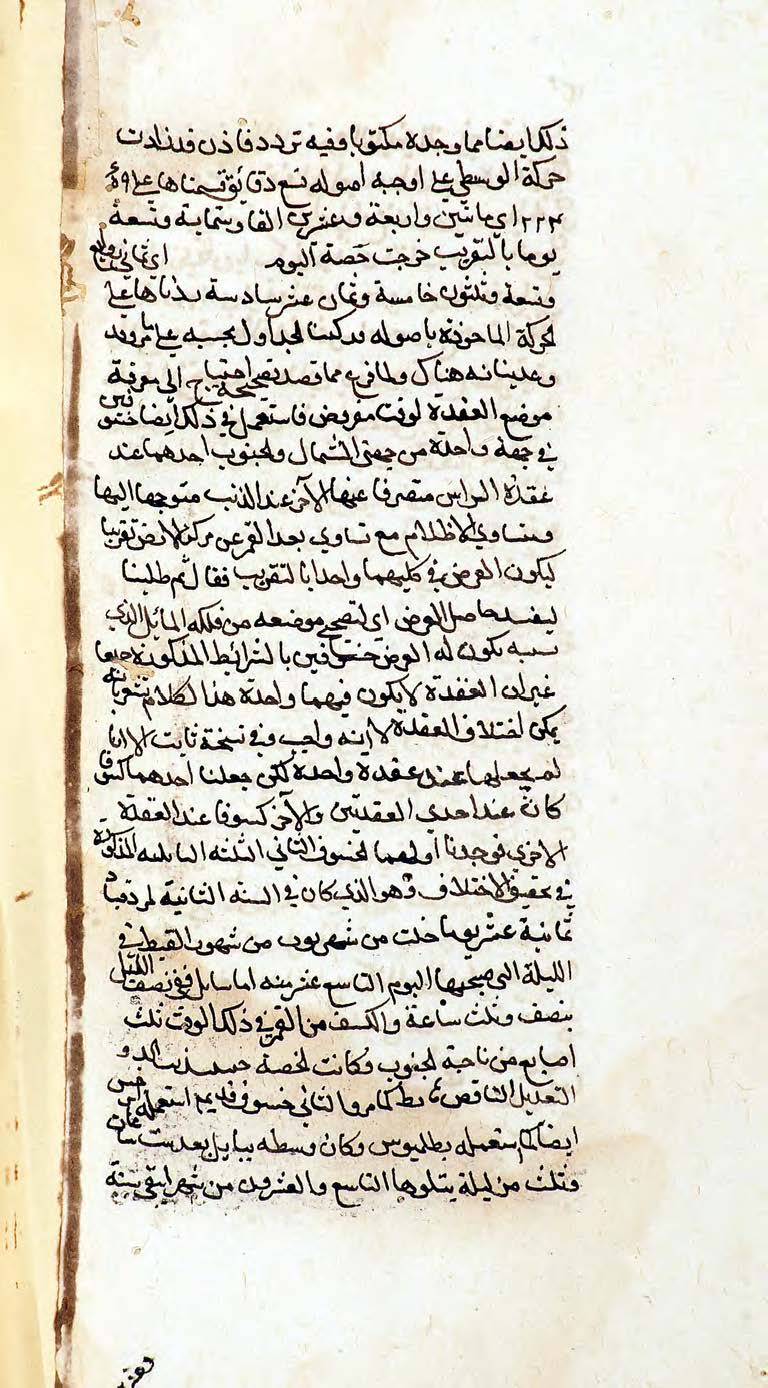 ذلك ايضا مما وجده مكتوبا وفيه تردد فاذن قد زادت
حركة الوسطي على اوجبه اصوله تسع دقايق قسمناها على
اي ماتين واربعة وعشرين الفا وستماية وتسعة
يوما بالتقريب خرجت حصة اليوم اي ثماني
وتسعة وثلثون خامسة وثمان عشر سادسة زدناها على
الحركة الماخوذة باصوله وركبنا الجداول بحسبه على ما مر وقد
وعدينا به هناك ولما فرغ مما قصد تصحيحه احتياج الى معرفة
موضع العقدة لوقت مفروض فاستعمل في ذلك ايضا خسوفين
في جهة واحدة من جهتي الشمال والجنوب احدهما عند
عقدة الراس منصرفا عنها الآخر عند الذنب متوجها اليها
ومتساوي الاظلام مع تساوي بعد القمر عن مركز الارض تقريبا
ليكون العرض في كليهما واحدا بالتقريب فقال ثم طلبنا
حاصل العرض اي لتصحيح موضعه من فلكه المايل الذي
بسببه يكون له العرض خسوفين بالشرائط المذكورة جميعا
غير ان العقدة لا يكون فيهما واحدة هذا الكلام يشعر بانه
يمكن اختلاف العقدة لا انه واجب وفي نسخة ثابت الا انا
لم نجعلها عند عقدة واحدة لكن جعلنا احدهما كسوفا
كان عند احدي العقدتين والآخر كسوفا عند العقدة
الاخري فوجدنا اولهما الخسوف الثاني الثلثة البابلية المذكورة
في تحقيق الاختلاف وهو الذي كان في السنه الثانية لمردقباد
ثمانية عشر يوما خلت من شهر توت من شهور القبط في
الليلة التي صبيحها اليوم التاسع عشر منه اما ببابل ففي نصف الليل
بنصف وثلث ساعة والكسف من القمر في ذلك الوقت ثلث
اصابع من ناحية الجنوب وكانت الحصة حينئذ
التعديل الناقص كما مر والثاني خسوف قديم استعمله ابرخس
ايضا كما استعمله بطلميوس وكان وسطه ببابل بعد ست ساعات
وثلث من ليلة يتلوها التاسع والعشرون من شهر ابيفي سنة